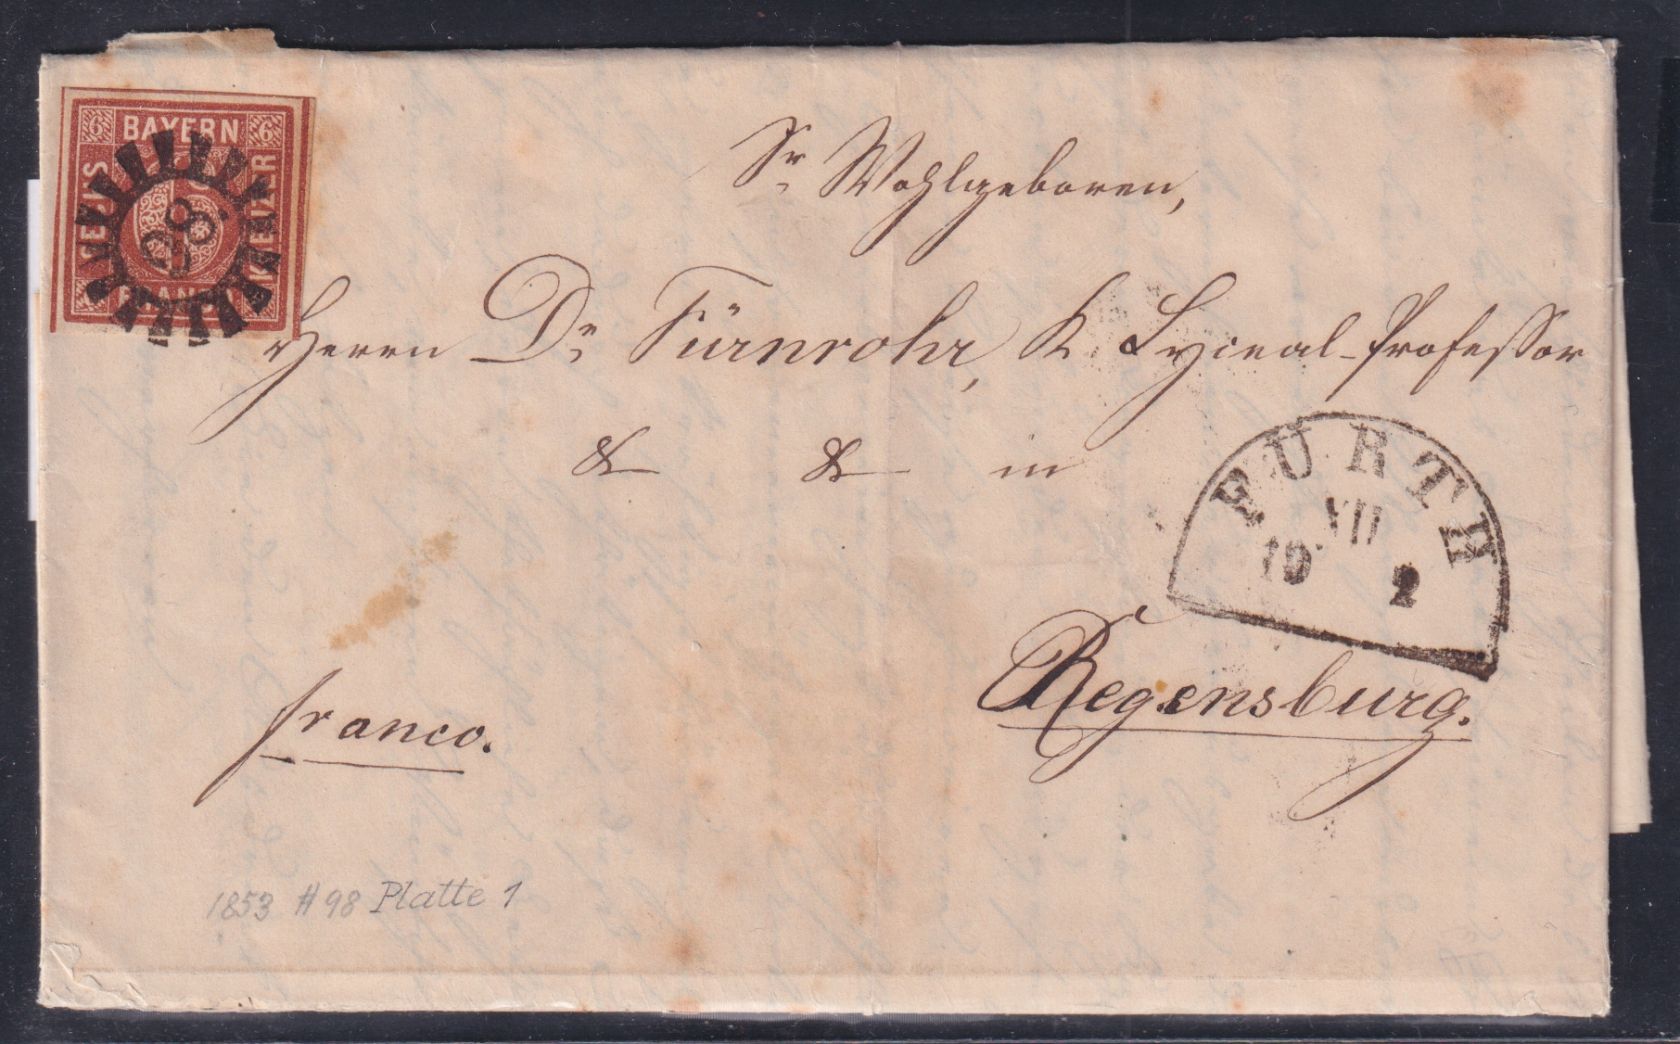 6 BAYERN 6
SECHS
KREUZER
FRANCO
98
Sr Wohlgeboren,
Herrn Dr Fürnrohr, K. Lyceal-Professor
& & in
FÜRTH
VII
19 2
Regensburg.
franco.
1853 #98 Platte 1